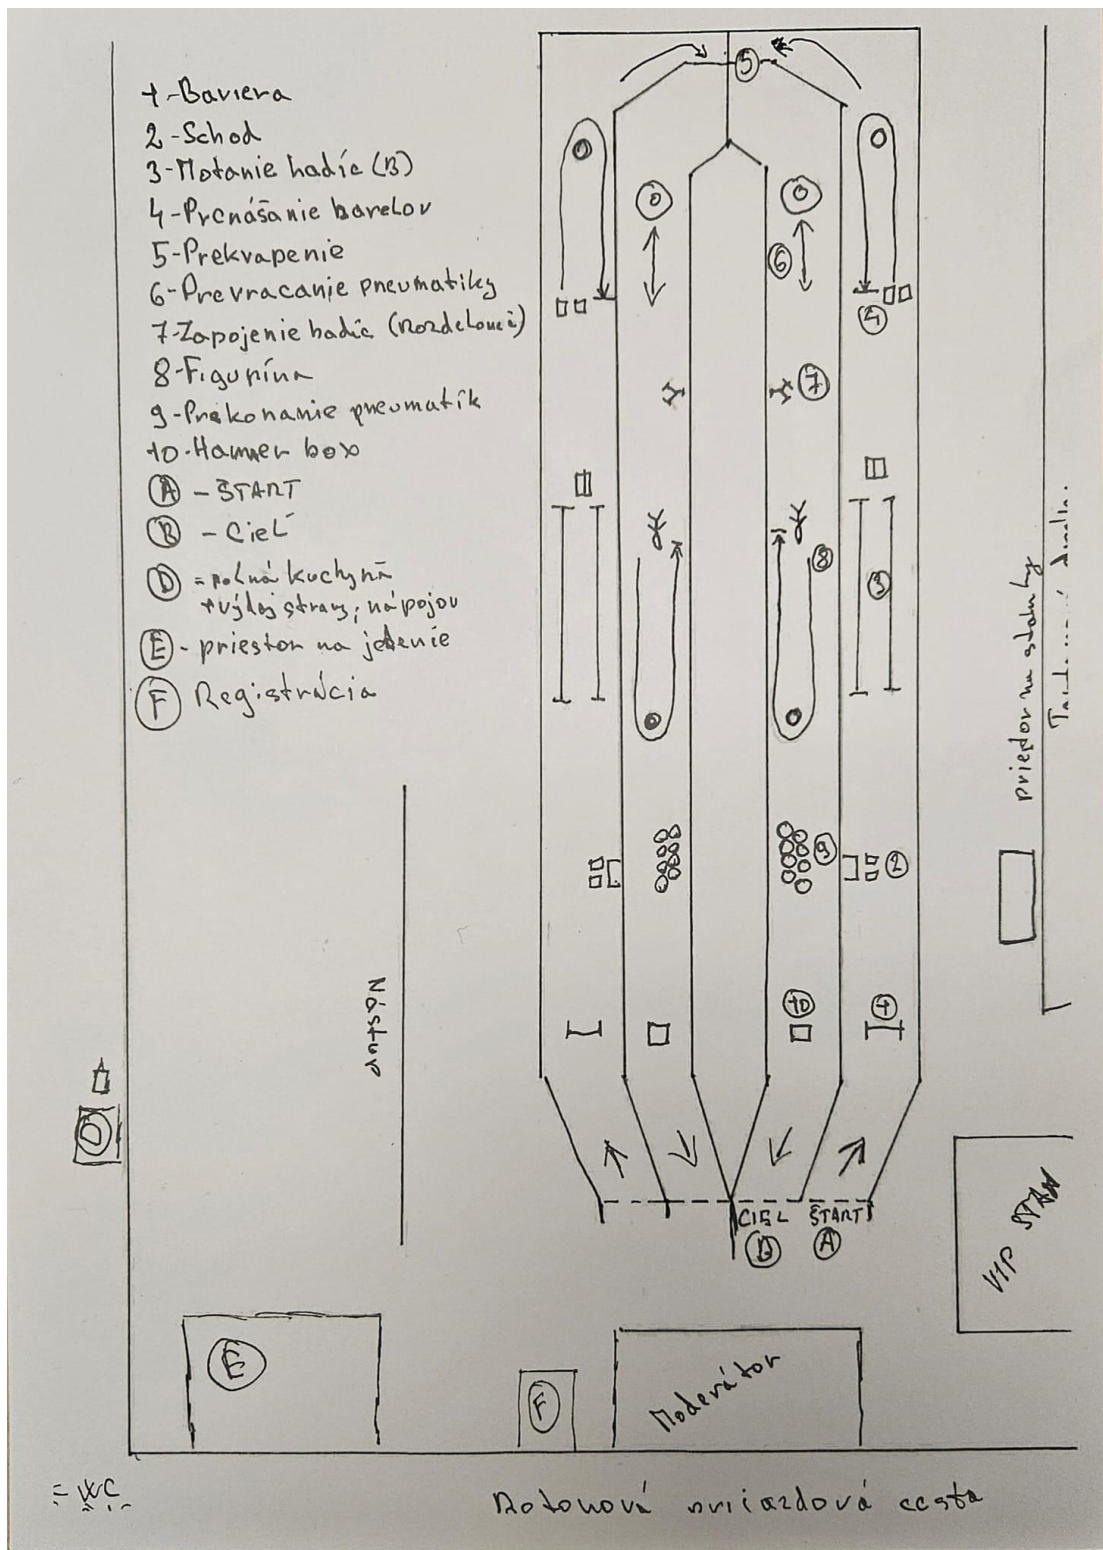 1-Bariera
2-Schod
3-Motanie hadíc (B)
4-Prenášanie barelov
5-Prekvapenie
6-Prevracanie pneumatiky
7-Zapojenie hadíc (Rozdelovač)
8-Figurína
9-Prekonanie pneumatík
10-Hammer box
A - ŠTART
B - Cieľ
D = poľná kuchyňa
+výdaj stravy, nápojov
E - priestor na jedenie
F Registrácia
5
6
4
7
8
3
9
2
10
1
priestor na
Nástup
D
CIEL ŠTART
B A
VIP STAN
E
F
Moderátor
= WC
Betonová cesta